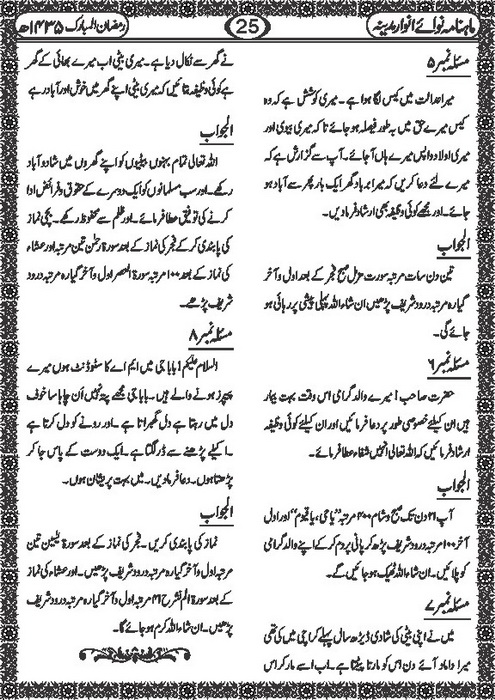 ماہنامہ نوائے انوار مدینہ
25
رمضان المبارک ۱۴۳۵ھ
مسئلہ نمبر ۵
میرا عدالت میں کیس لگا ہوا ہے۔ میری کوشش ہے کہ وہ
کیس میرے حق میں بہ طور فیصلہ ہو جائے تاکہ میری بیوی اور
میری اولاد واپس میرے ہاں آجائے۔ آپ سے گزارش ہے کہ
میرے لئے دعا کریں کہ میرا برباد گھر ایک بار پھر سے آباد ہو
جائے۔ اور مجھے کوئی وظیفہ بھی ارشاد فرما دیں۔
الجواب
تین دن سات مرتبہ سورت مزمل صبح فجر کے بعد اول و آخر
گیارہ مرتبہ درود شریف پڑھیں ان شاء اللہ پہلی پیشی پر رہائی ہو
جائے گی۔
مسئلہ نمبر ۶
حضرت صاحب! میرے والد گرامی اس وقت بہت بیمار
ہیں ان کیلئے خصوصی طور پر دعا فرمائیں اور ان کیلئے کوئی وظیفہ
ارشاد فرمائیں کہ اللہ تعالیٰ انہیں شفاء عطا فرمائے۔
الجواب
آپ ۲۱ دن تک صبح و شام ۴۰۰ مرتبہ ”یا حی، یا قیوم“ اور اول
آخر ۱۰۰ مرتبہ درود شریف پڑھ کر پانی پر دم کر کے اپنے والد گرامی
کو پلائیں۔ ان شاء اللہ ٹھیک ہو جائیں گے۔
مسئلہ نمبر ۷
میں نے اپنی بیٹی کی شادی ڈیڑھ سال پہلے کراچی میں کی تھی
میرا داماد آئے دن اس کو مارتا پیٹتا ہے۔ اب اسے مار کر اس
نے گھر سے نکال دیا ہے۔ میری بیٹی اب میرے بھائی کے گھر
ہے کوئی وظیفہ بتائیں کہ میری بیٹی اپنے گھر میں خوش اور آباد رہے
الجواب
اللہ تعالیٰ تمام بہنوں بیٹیوں کو اپنے گھروں میں شاد و آباد
رکھے۔ اور سب مسلمانوں کو ایک دوسرے کے حقوق و فرائض ادا
کرنے کی توفیق عطا فرمائے۔ اور ظلم سے محفوظ رکھے۔ بچی نماز
کی پابندی کرکے فجر کی نماز کے بعد سورۃ رحمٰن تین مرتبہ اور عشاء
کی نماز کے بعد ۱۰۰ مرتبہ سورۃ العصر اول و آخر گیارہ مرتبہ درود
شریف پڑھے۔
مسئلہ نمبر ۸
السلام علیکم! بابا جی میں ایم اے کا سٹوڈنٹ ہوں میرے
پیپرز ہونے والے ہیں۔ بابا جی مجھے پتہ نہیں اَن چاہا سا خوف
دل میں رہتا ہے دل گھبراتا ہے۔ اور رونے کو دل کرتا ہے
۔ اکیلے پڑھنے سے ڈر لگتا ہے۔ ایک دوست کے پاس جا کر
پڑھتا ہوں۔ دعا فرما دیں۔ میں بہت پریشان ہوں۔
الجواب
نماز کی پابندی کریں۔ فجر کی نماز کے بعد سورۃ یٰسین تین
مرتبہ اول و آخر گیارہ مرتبہ درود شریف پڑھیں۔ اور عشاء کی نماز
کے بعد سورۃ الم نشرح ۴۱ مرتبہ اول و آخر گیارہ مرتبہ درود شریف
پڑھیں۔ ان شاء اللہ کرم ہو جائے گا۔